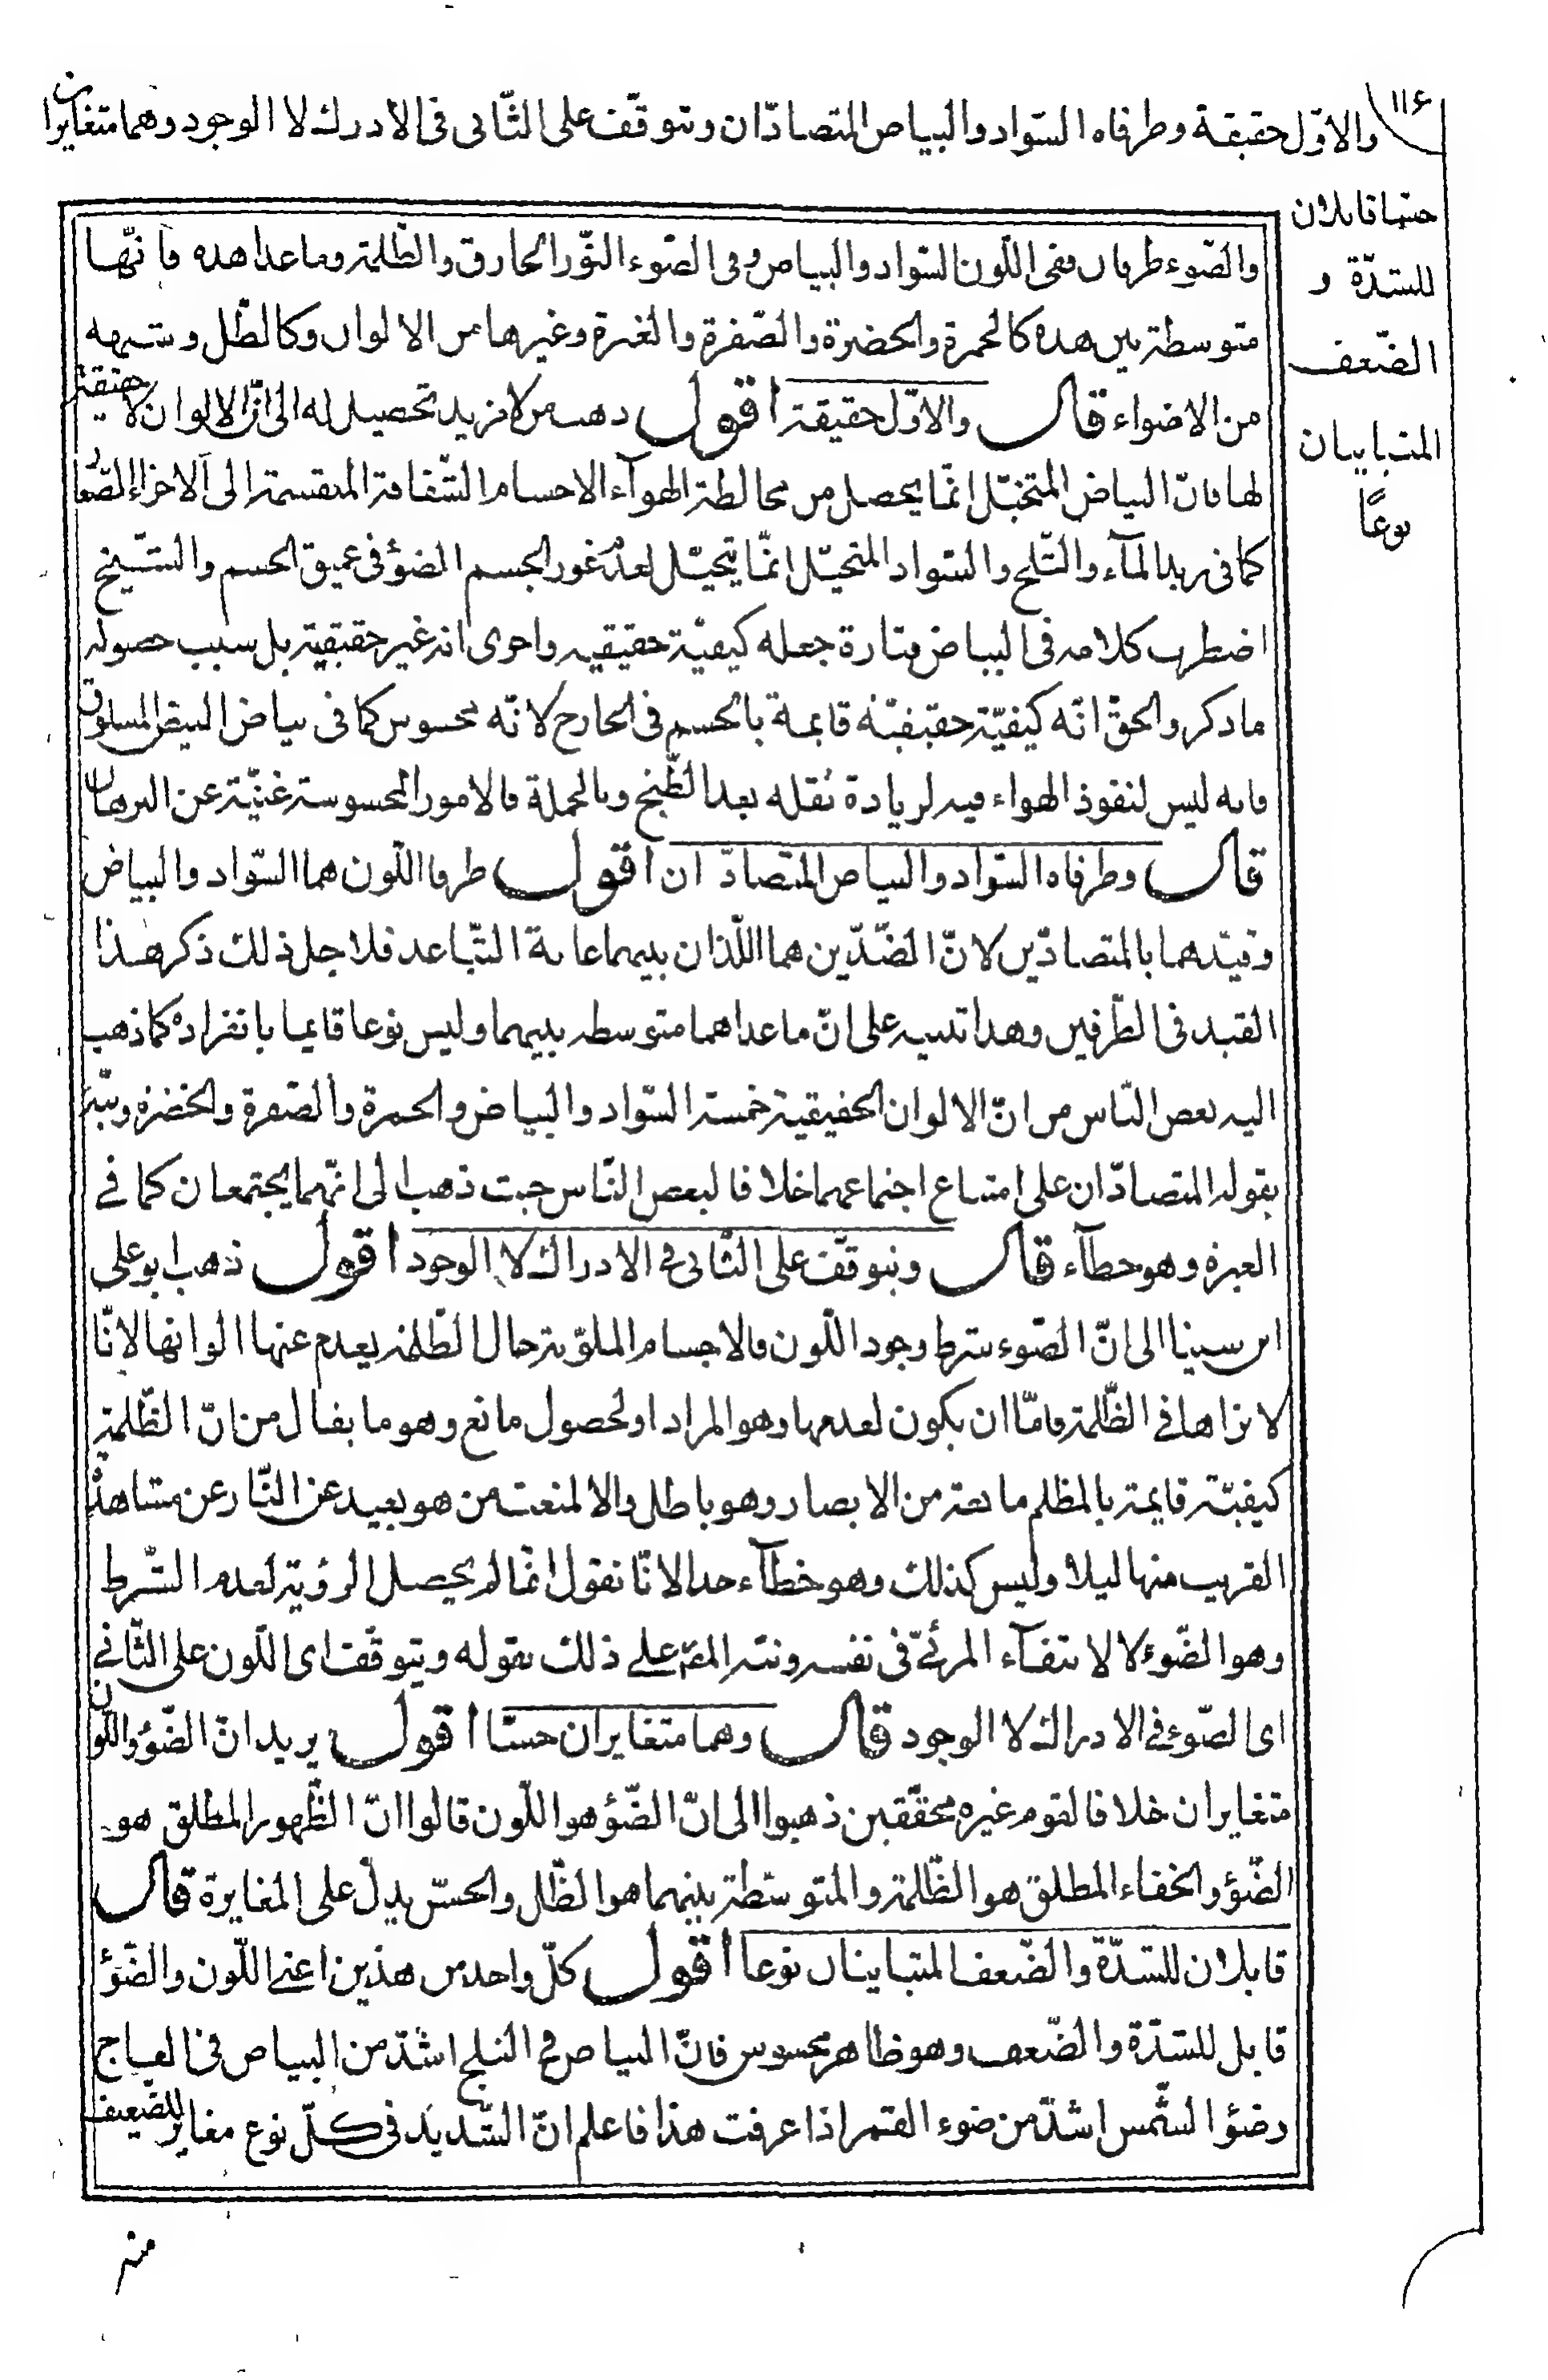 ١١۶
والاوّل حقيقة وطرفاه السّواد والبياض المتضادّان ويتوقّف على الثّانى فى الادراك لا الوجود وهما متغايران
حسّا قابلان
للشدّة و
الضّعف
المتباينان
نوعاً
والضّوء طرفان ففى اللّون السّواد والبياض وفى الضّوء النّور الخارق والظّلمة وما عدا هذه فانّها
متوسطة بين هذه كالحمرة والخضرة والصّفرة والغبرة وغيرها من الالوان وكالظّل وشبهه
من الاضواء قال والاوّل حقيقة اقول ذهب من لا مزيد تحصيل له الى انّ الالوان لا حقيقة
لها فانّ البياض المتخيّل انّما يحصل من مخالطة الهوآء الاجسام الشّفافة المنقسمة الى الاجزاء الصّغار
كما فى زبد المآء والثّلج والسّواد المتخيّل انّما يتخيّل لعدم غور الجسم الضوء فى عميق الجسم والشّيخ
اضطرب كلامه فى البياض فتارة جعله كيفيّة حقيقيه واخرى انه غير حقيقية بل سبب حصوله
ما ذكر والحقّ انّه كيفيّة حقيقيّة قايمة بالجسم فى الخارج لانّه محسوس كما فى بياض البيض المسلوق
فانه ليس لنفوذ الهواء فيه لزيادة ثقله بعد الطّبخ وبالجملة فالامور المحسوسة غنيّة عن البرهان
قال وطرفاه السّواد والبياض المتضادّان اقول طرفا اللّون هما السّواد والبياض
وقيّدهما بالمتضادّين لانّ الضّدّين هما اللّذان بينهما غاية التّباعد فلاجل ذلك ذكر هذا
القيد فى الطّرفين وهذا تنبيه على انّ ما عداهما متوسطه بينهما وليس نوعا قايما بانفراده كما ذهب
اليه بعض النّاس من انّ الالوان الحقيقية خمسة السّواد والبياض والحمرة والصّفرة والخضرة ونبّه
بقوله المتضادّان على امتناع اجتماعهما خلافا لبعض النّاس حيث ذهب الى انّهما يجتمعان كما فے
الغبرة وهو خطآء قال ويتوقّف على الثّانى فى الادراك لا الوجود اقول ذهب ابو على
ابن سينا الى انّ الضّوء شرط وجود اللّون فالاجسام الملوّنة حال الظّلمة يعدم عنها الوانها لانّا
لا نراها فى الظّلمة فامّا ان يكون لعدمها وهو المراد او لحصول مانع وهو ما يقال من انّ الظّلمة
كيفيّة قايمة بالمظلم مانعة من الابصار وهو باطل والا لمنعت من هو بعيد عن النّار عن مشاهدة
القريب منها ليلا وليس كذلك وهو خطآء جدا لانّا نقول انّما لم يحصل الرؤية لعدم الشّرط
وهو الضّوء لا لانتفآء المرئىّ فى نفسه ونبّه المصّ على ذلك بقوله ويتوقّف اى اللّون على الثّانے
اى الضّوء فے الادراك لا الوجود قال وهما متغايران حسّا اقول يريد انّ الضّوء واللّون
متغايران خلافا لقوم غير محقّقين ذهبوا الى انّ الضّوء هو اللّون قالوا انّ الظّهور المطلق هو
الضّوء والخفاء المطلق هو الظّلمة والمتوسّطة بينهما هو الظّل والحسّ يدلّ على المغايرة قال
قابلان للشدّة والضّعف المتباينان نوعا اقول كلّ واحد من هذين اعنى اللّون والضّوء
قابل للشدّة والضّعف وهو ظاهر محسوس فانّ البياض فى الثلج اشدّ من البياض فى العاج
وضوء الشّمس اشدّ من ضوء القمر اذا عرفت هذا فاعلم انّ الشّديد فى كلّ نوع مغاير للضّعيف
منه